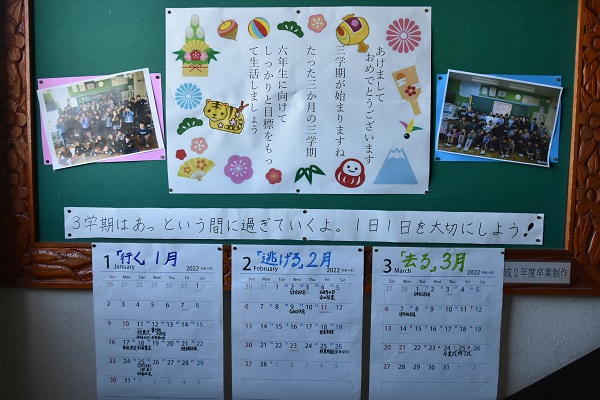 あけまして
おめでとうございます
三学期が始まりますね
たった三か月の三学期
六年生に向けて
しっかりと目標をもっ
て生活しましょう
3学期はあっという間に過ぎていくよ。1日1日を大切にしよう!
1 「行く」1月
January 2022
Sun Mon Tue Wed Thu Fri Sat
26 27 28 29 30 31 1
2 3 4 5 6 7 8
9 10 11 12 13 14 15
16 17 18 19 20 21 22
23 24 25 26 27 28 29
30 31
2 「逃げる」2月
February 2022
Sun Mon Tue Wed Thu Fri Sat
30 31 1 2 3 4 5
6 7 8 9 10 11 12
13 14 15 16 17 18 19
20 21 22 23 24 25 26
27 28
3 「去る」3月
March 2022
Sun Mon Tue Wed Thu Fri Sat
27 28 1 2 3 4 5
6 7 8 9 10 11 12
13 14 15 16 17 18 19
20 21 22 23 24 25 26
卒業式 修了式
27 28 29 30 31
成2年度卒業制作